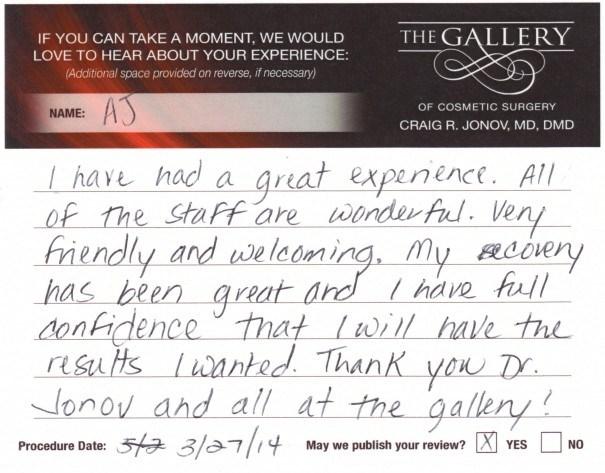 IF YOU CAN TAKE A MOMENT, WE WOULD
LOVE TO HEAR ABOUT YOUR EXPERIENCE:
(Additional space provided on reverse, if necessary)
NAME: AJ
THE GALLERY
OF COSMETIC SURGERY
CRAIG R. JONOV, MD, DMD
I have had a great experience. All
of the staff are wonderful. Very
friendly and welcoming. My recovery
has been great and I have full
confidence that I will have the
results I wanted. Thank you Dr.
Jonov and all at the gallery!
Procedure Date: 5/2 3/27/14 May we publish your review? X YES NO